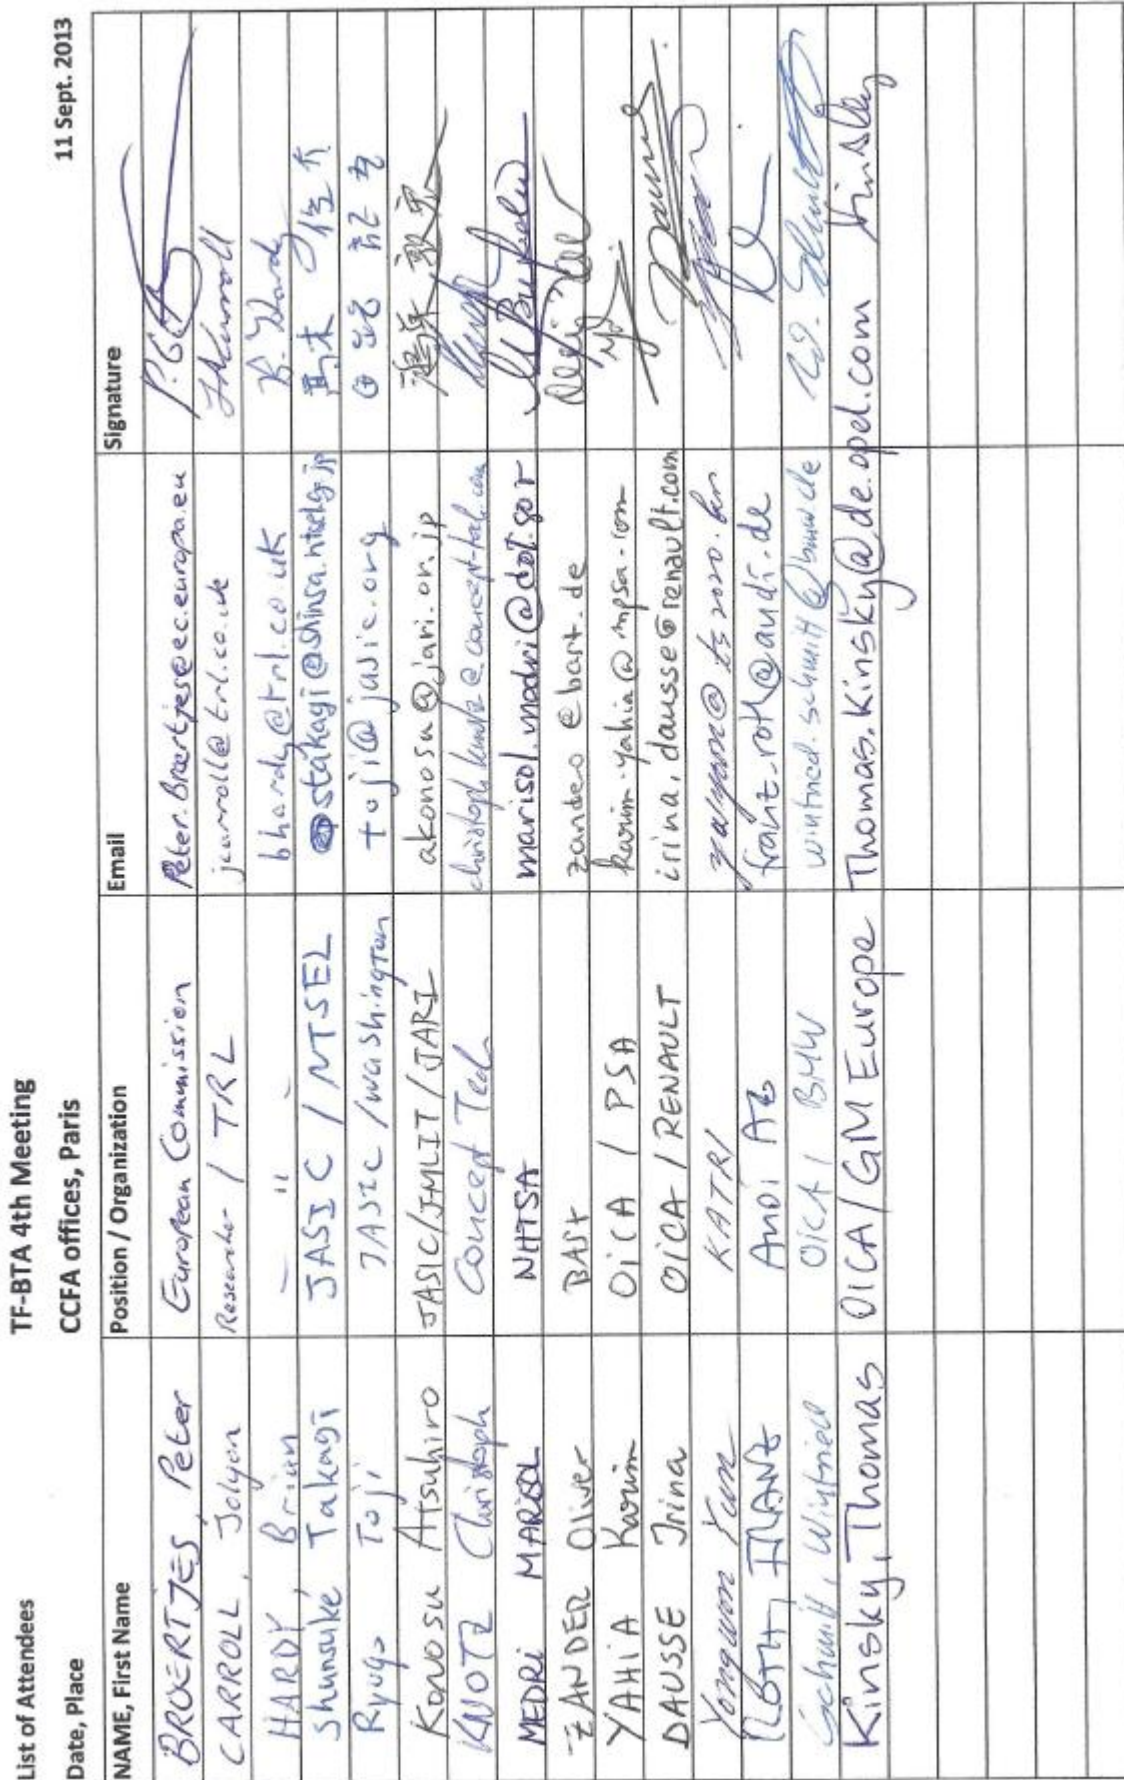 List of Attendees TF-BTA 4th Meeting
Date, Place CCFA offices, Paris 11 Sept. 2013
NAME, First Name Position / Organization Email Signature
BROERTJES, Peter European Commission Peter.Broertjes@ec.europa.eu
CARROLL, Jolyon Researcher / TRL jcarroll@trl.co.uk JACarroll
HARDY, Brian — " — bhardy@trl.co.uk B. Hardy
Shunsuke Takagi JASIC / NTSEL stakagi@shinsa.ntsel.go.jp 髙木 俊介
Ryugo Toji JASIC / Washington toji@jasic.org
Konosu Atsuhiro JASIC/JMLIT/JARI akonosu@jari.or.jp 鴻巣 敦宏
KNOTZ Christoph Concept Tech
MEDRI MARISOL NHTSA marisol.medri@dot.gov
ZANDER Oliver BASt zander@bast.de
YAHIA Karim OICA / PSA karim.yahia@mpsa.com
DAUSSE Irina OICA / RENAULT irina.dausse@renault.com
Yongwon Yun KATRI
ROTH, FRANZ Audi AG franz.roth@audi.de
Schmitt, Winfried OICA / BMW winfried.schmitt@bmw.de
Kinsky, Thomas OICA/GM Europe Thomas.Kinsky@de.opel.com Kinsky